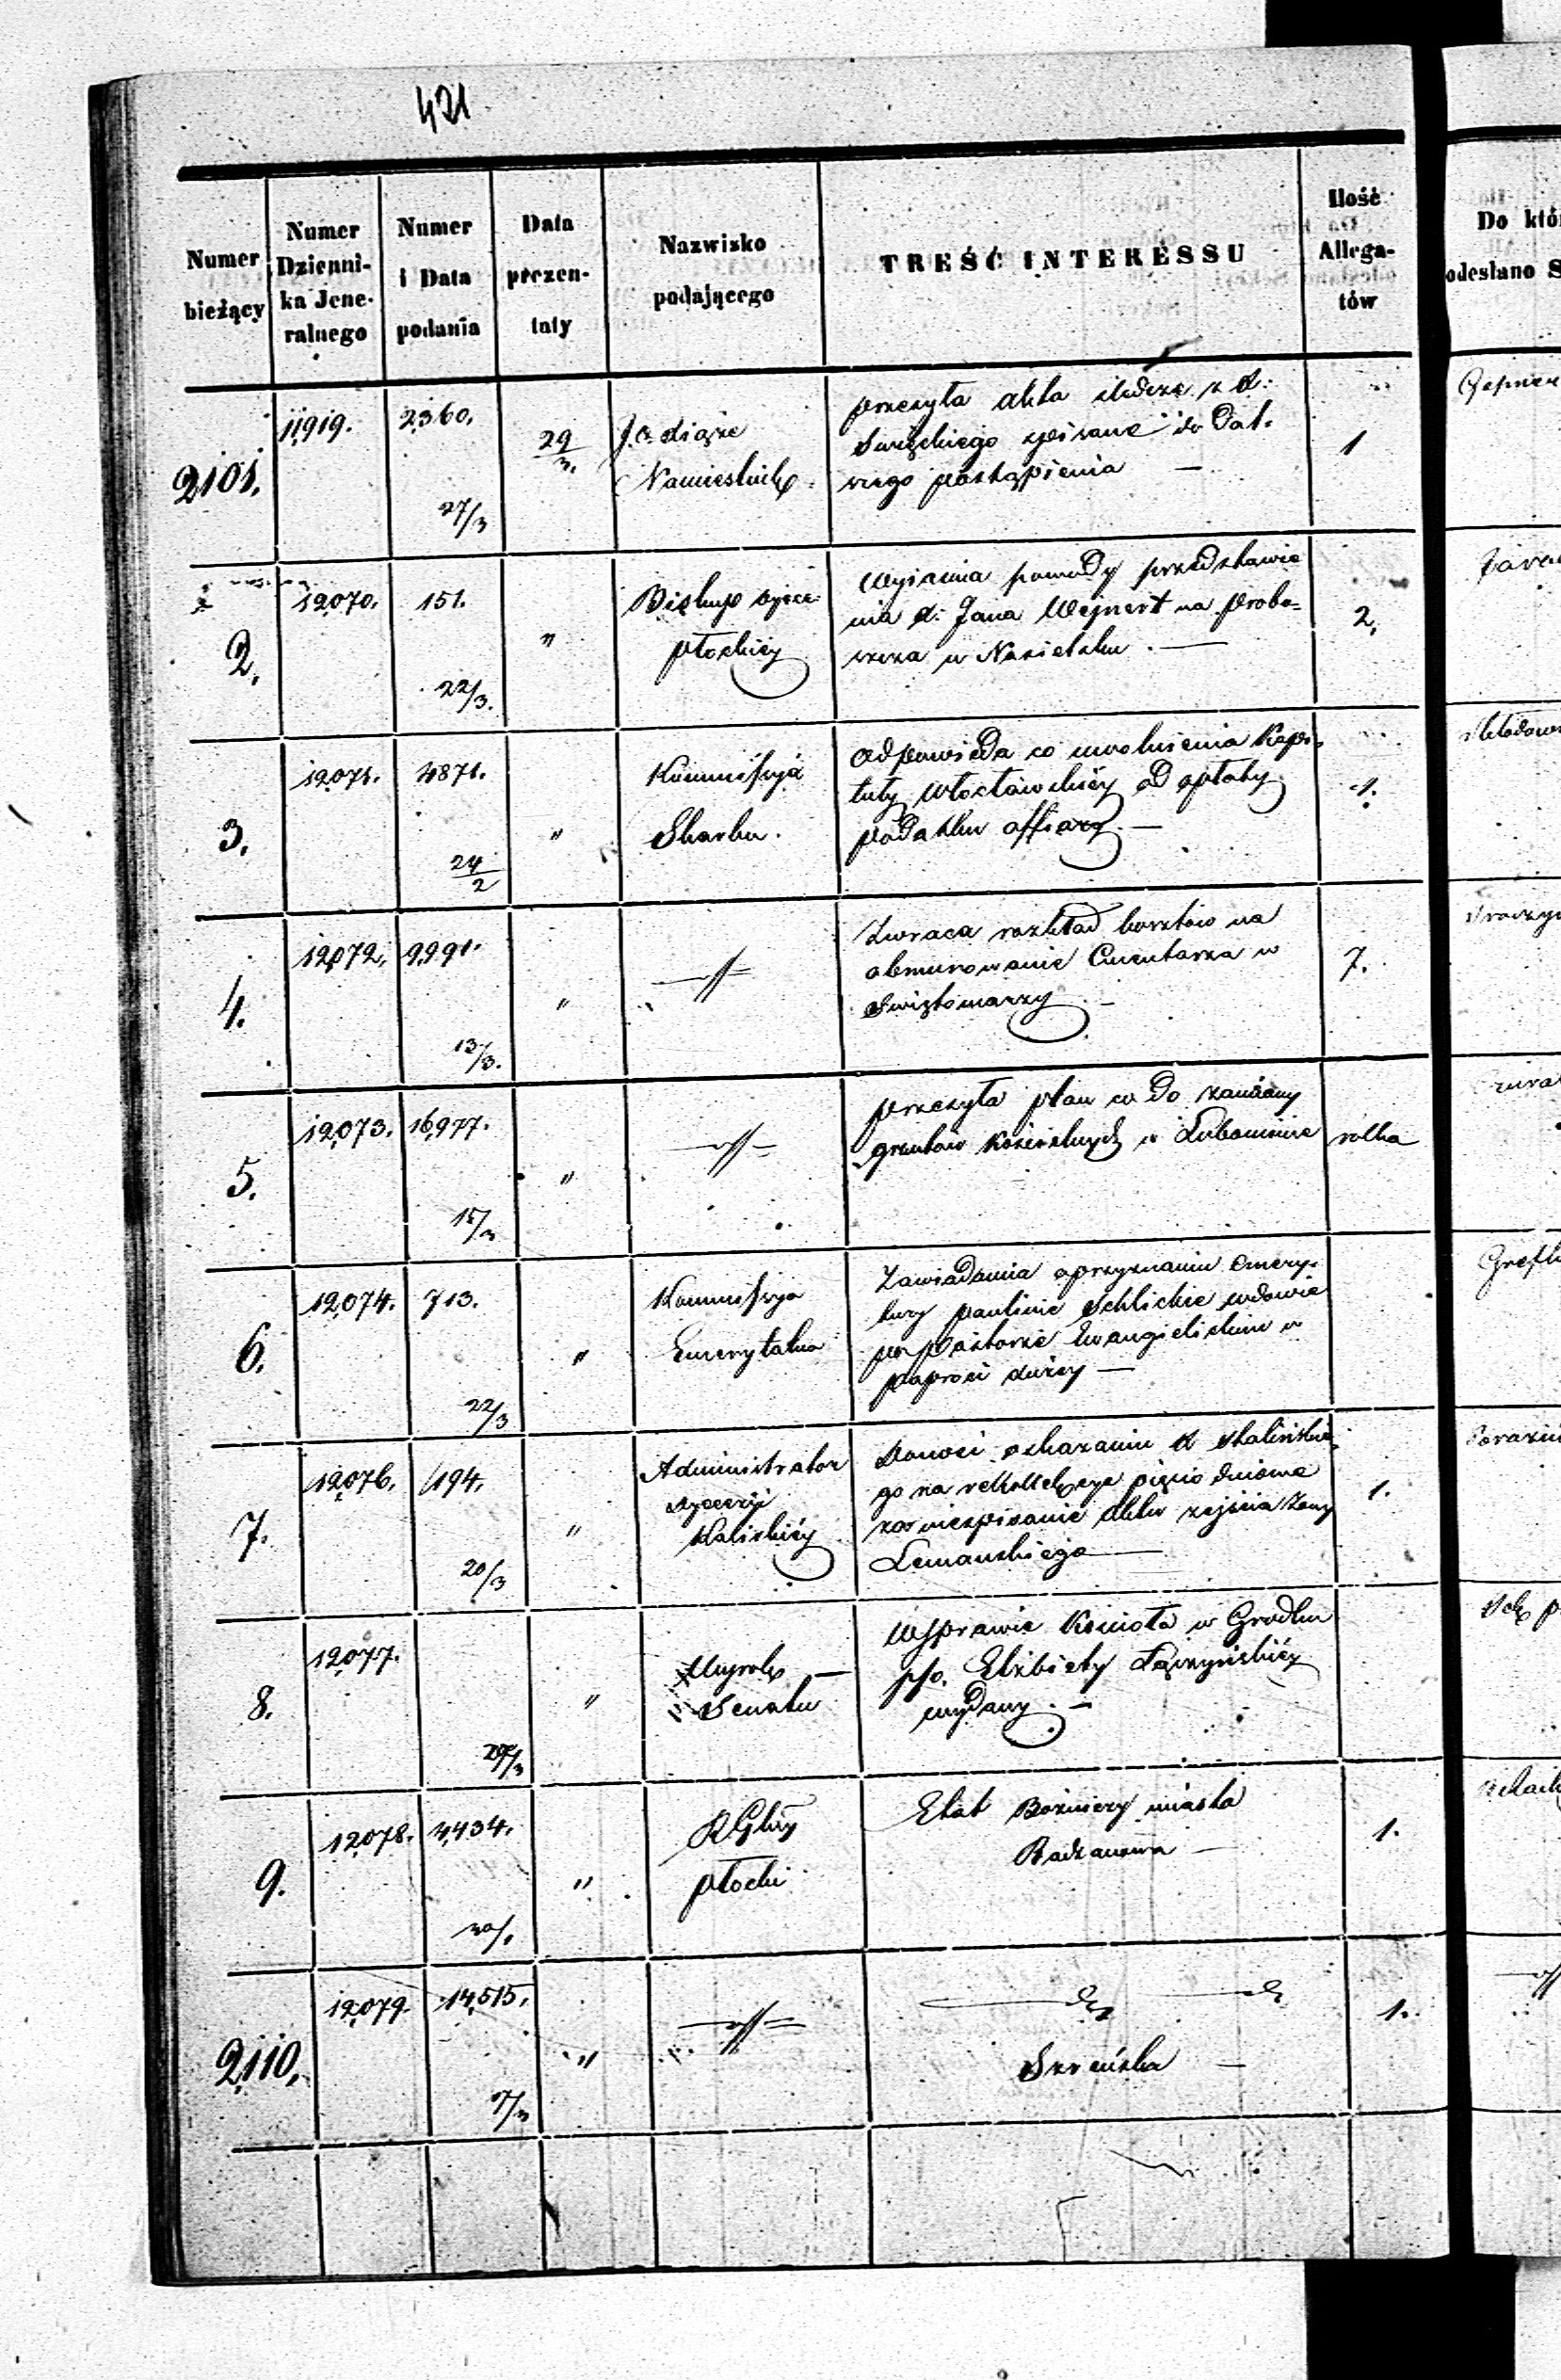 421
Numer bieżący
Numer Dzienni-ka Jene-ralnego
Numer i Data podania
Data prezen-taty
Nazwisko podającego
TREŚĆ INTERESSU
Ilość Allega-tów
Do któ
odesłano S
2101.
11,919.
2360.
27/3
29/3.
J. O. Xiąże
Namiestnik
przesyła akta śledcze z X.
Święckiego spisane do Dal-
szego postąpienia —
1
2.
12,070.
151.
22/3.
"
Biskup dyece.
płockiey
Wyjaśnia powody przedstawie
nia X. Jana Wejnert na probo=
szcza w Nasielsku. —
2,
3.
12,071.
4871.
24/2
"
Kommissya
Skarbu.
Odpowieda co uwolnienia Kapi-
tuły Włocławskiéy od opłaty
podatku offiary. —
1.
4.
12,072,
9,991.
13/3.
"
Zwraca rozkład kosztów na
obmurowanie Cmentarza w
Świętomarzy. —
7.
5.
12,073.
16,977.
15/3
"
przesyła plan co do zamiany
gruntów kościelnych w Lubominie
rolka
6.
12,074.
713.
22/3
"
Kommissya
Emerytalna
Zawiadamia o przyznaniu Emery-
tury Paulinie Schlicke wdowie
po Pastorze Ewangielickim w
Paproci dużey —
7.
12,076.
194.
20/3
"
Administrator
dyecezji
Kaliskiéy
Donosi o skazaniu X Skalińskie
go na rekollekcye pięcio dniowe
za niespisanie aktu zejścia żony
Lemańskiego —
1.
8.
12,077.
"
Wyrok —
Senatu
W sprawie Kościoła w Grodku
p/o. Elżbiety Łączyńskiéy
wydany. —
9.
12,078.
4,434.
"
RGbny
płocki
Etat Bóżnicy miasta
Radzanowa —
1.
2,110.
12,079.
14,515.
"
Szreńska —
1.